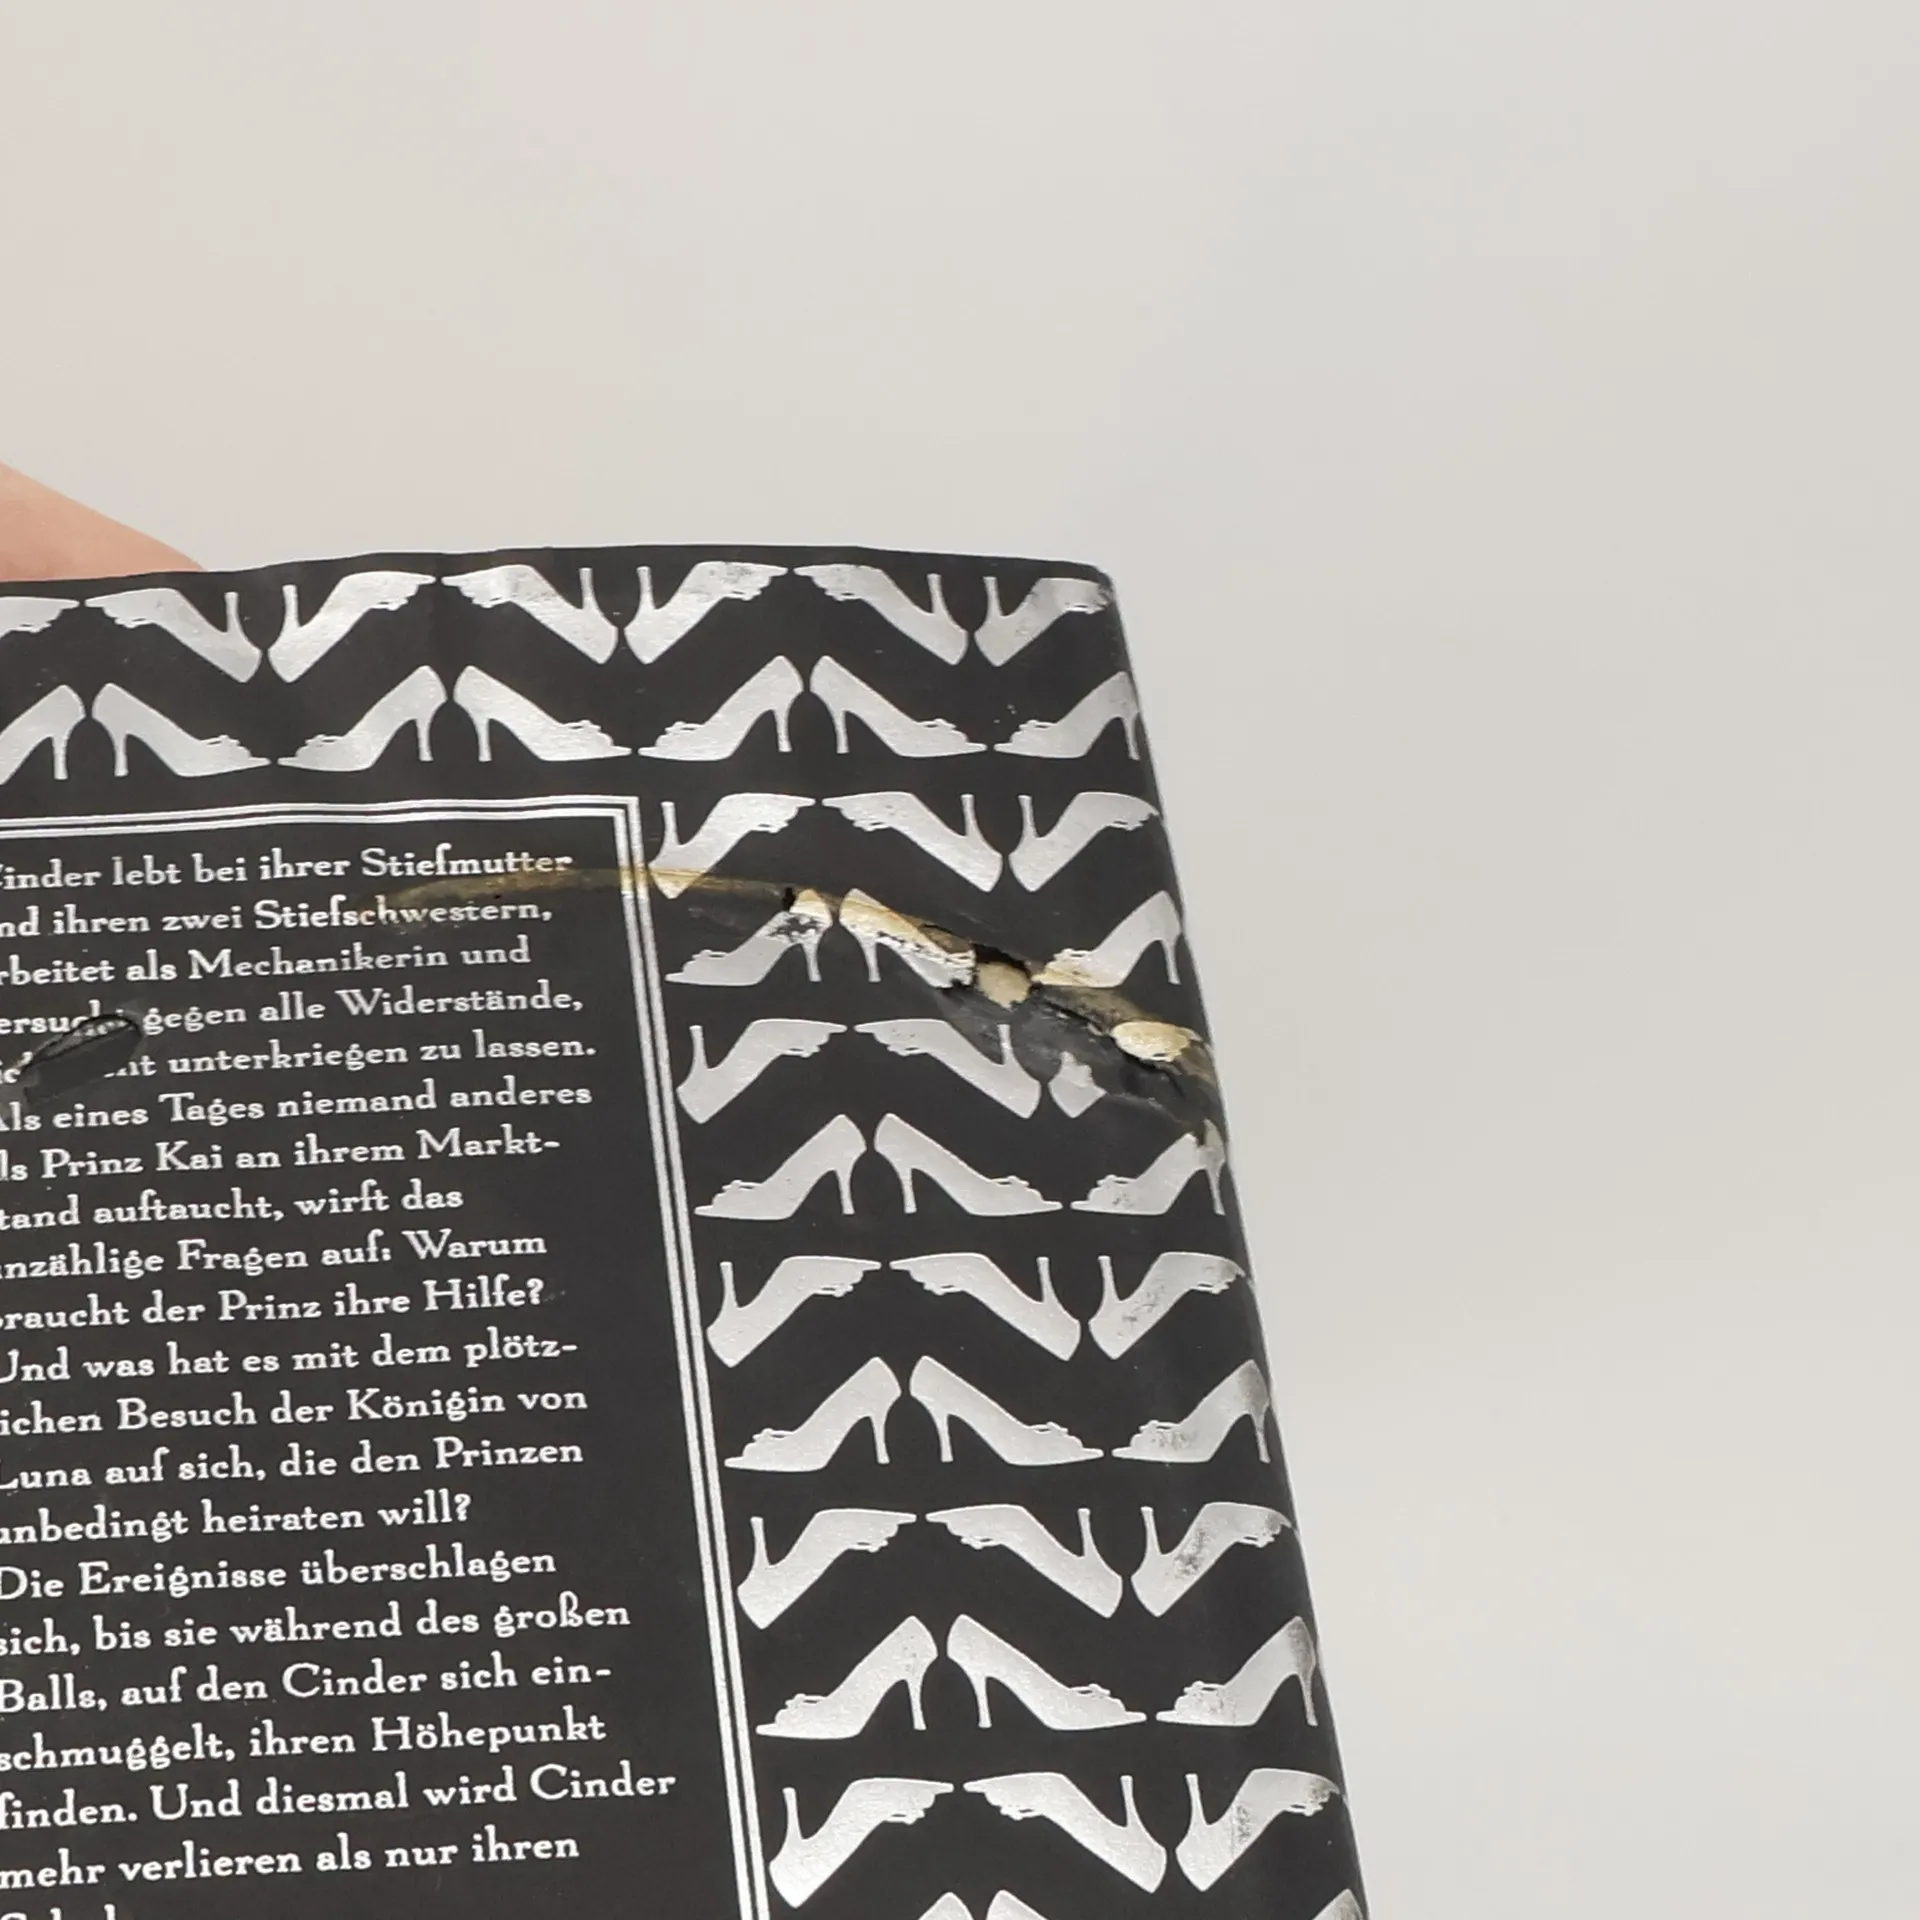 inder lebt bei ihrer Stiefmutter
nd ihren zwei Stiefschwestern,
rbeitet als Mechanikerin und
gegen alle Widerstände,
unterkriegen zu lassen.
Als eines Tages niemand anderes
ls Prinz Kai an ihrem Markt-
tand auftaucht, wirft das
nzählige Fragen auf: Warum
raucht der Prinz ihre Hilfe?
Und was hat es mit dem plötz-
ichen Besuch der Königin von
Luna auf sich, die den Prinzen
unbedingt heiraten will?
Die Ereignisse überschlagen
sich, bis sie während des großen
Balls, auf den Cinder sich ein-
schmuggelt, ihren Höhepunkt
finden. Und diesmal wird Cinder
mehr verlieren als nur ihren